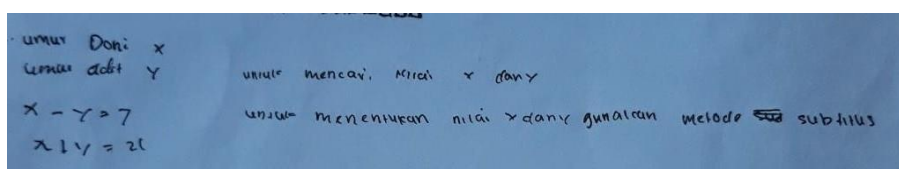 umur Doni x
umur adit y
untuk mencari nilai x dan y
x - y = 7
untuk menentukan nilai x dan y gunakan metode subtitus